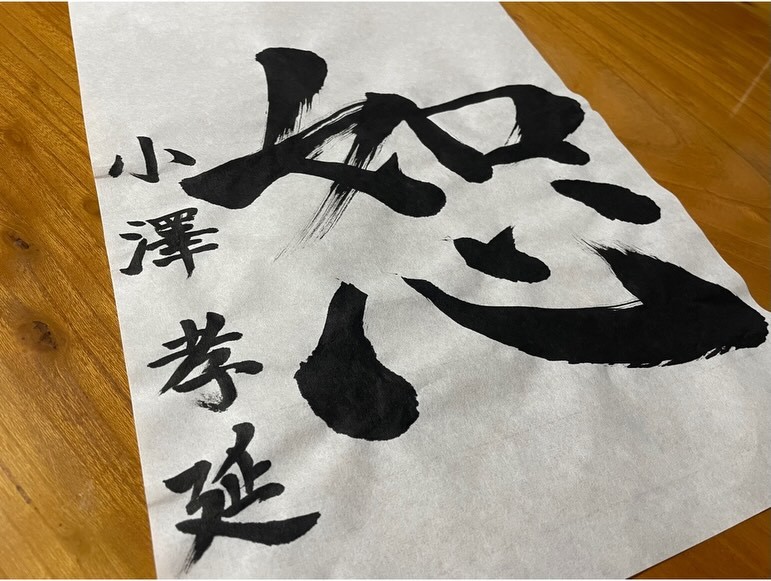 恕
小澤孝延